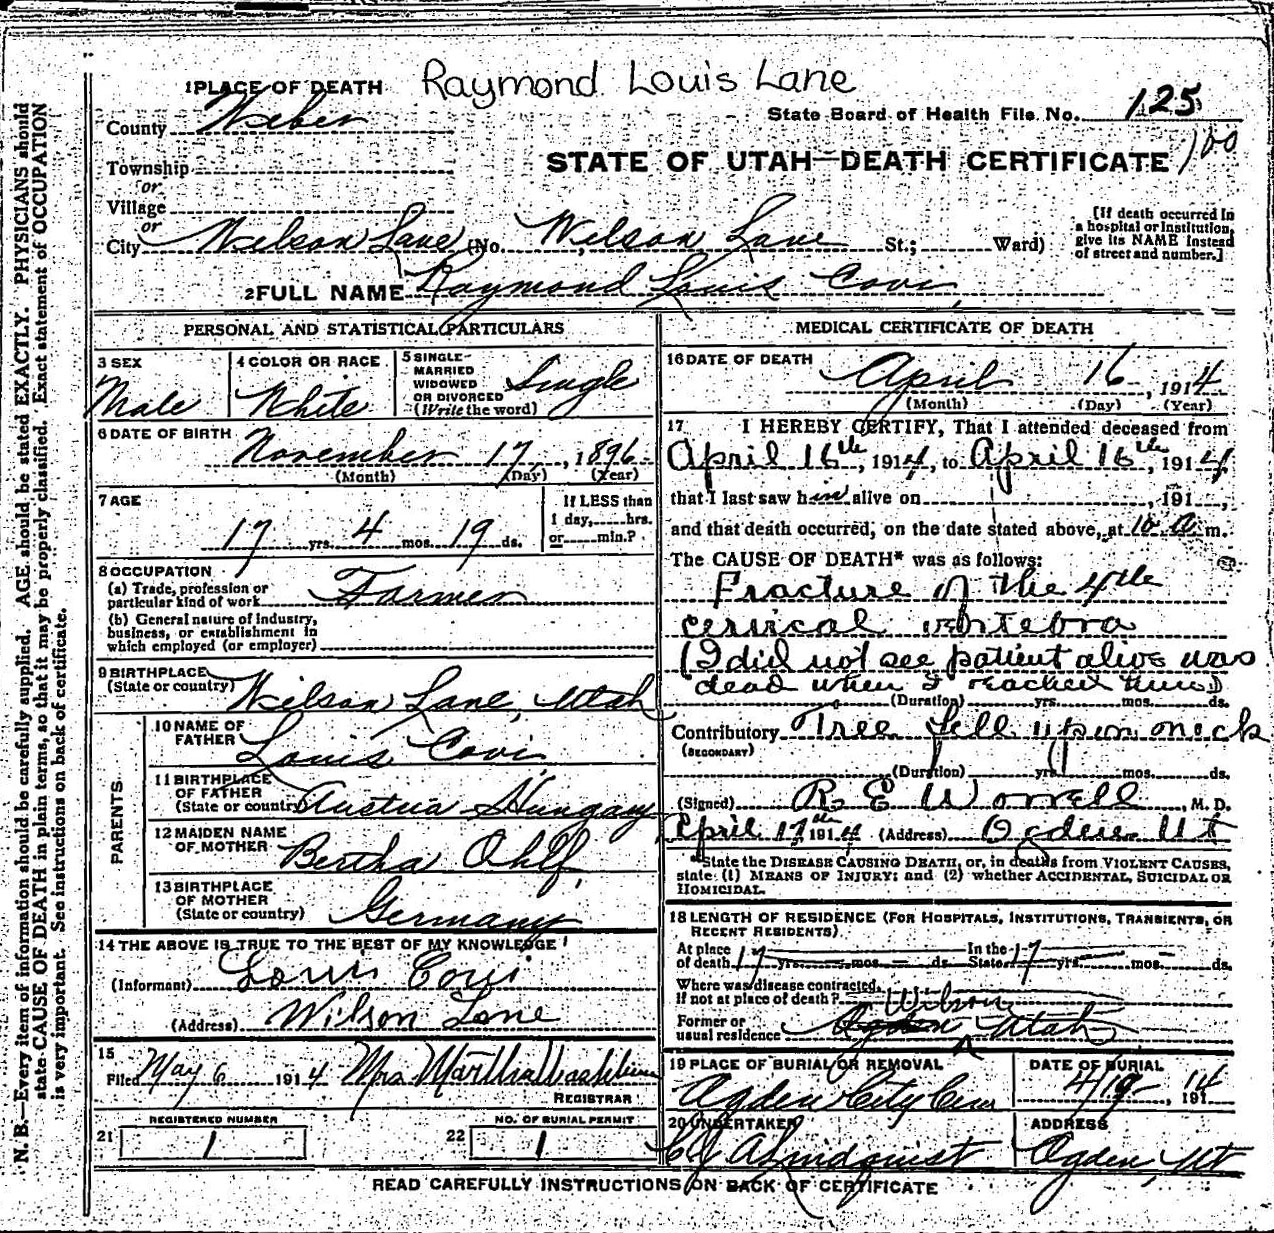 Raymond Louis Lane
1 PLACE OF DEATH
County Weber
State Board of Health File No. 125
100
Township
or
Village
or
STATE OF UTAH—DEATH CERTIFICATE
City Wilson Lane (No. Wilson Lane St.; Ward)
[If death occurred in
a hospital or institution,
give its NAME instead
of street and number.]
2 FULL NAME Raymond Louis Covi
PERSONAL AND STATISTICAL PARTICULARS
3 SEX
Male
4 COLOR OR RACE
White
5 SINGLE
MARRIED
WIDOWED
OR DIVORCED
(Write the word)
Single
6 DATE OF BIRTH
November 17, 1896
(Month) (Day) (Year)
7 AGE
17 yrs. 4 mos. 19 ds.
If LESS than
1 day, hrs.
or min.?
8 OCCUPATION
(a) Trade, profession or
particular kind of work Farmer
(b) General nature of industry,
business, or establishment in
which employed (or employer)
9 BIRTHPLACE
(State or country) Wilson Lane, Utah
PARENTS
10 NAME OF
FATHER Louis Covi
11 BIRTHPLACE
OF FATHER
(State or country) Austria Hungary
12 MAIDEN NAME
OF MOTHER Bertha Ohlf
13 BIRTHPLACE
OF MOTHER
(State or country) Germany
14 THE ABOVE IS TRUE TO THE BEST OF MY KNOWLEDGE
(Informant) Louis Covi
(Address) Wilson Lane
15
Filed May 6 1914 Mrs Martha Washburn
REGISTRAR
REGISTERED NUMBER
21 1
NO. OF BURIAL PERMIT
22 1
MEDICAL CERTIFICATE OF DEATH
16 DATE OF DEATH
April 16, 1914
(Month) (Day) (Year)
17 I HEREBY CERTIFY, That I attended deceased from
April 16th, 1914, to April 16th, 1914,
that I last saw him alive on , 191 ,
and that death occurred, on the date stated above, at 10 a m.
The CAUSE OF DEATH* was as follows:
Fracture of the 4th
cervical vertebra
(I did not see patient alive was
dead when I reached there)
(Duration) yrs. mos. ds.
Contributory Tree fell upon neck
(SECONDARY)
(Duration) yrs. mos. ds.
(Signed) R. E Worrell, M. D.
April 17th 1914 (Address) Ogden Ut
*State the DISEASE CAUSING DEATH, or, in deaths from VIOLENT CAUSES,
state (1) MEANS OF INJURY; and (2) whether ACCIDENTAL, SUICIDAL OR
HOMICIDAL.
18 LENGTH OF RESIDENCE (FOR HOSPITALS, INSTITUTIONS, TRANSIENTS, OR
RECENT RESIDENTS).
At place In the
of death 17 yrs. mos. ds. State 17 yrs. mos. ds.
Where was disease contracted,
if not at place of death?
Wilson
Former or
usual residence Ogden Utah
19 PLACE OF BURIAL OR REMOVAL
Ogden City Cem
DATE OF BURIAL
4/19, 1914
20 UNDERTAKER
Lindquist
ADDRESS
Ogden, Ut
READ CAREFULLY INSTRUCTIONS ON BACK OF CERTIFICATE
N. B.—Every item of information should be carefully supplied. AGE should be stated EXACTLY. PHYSICIANS should
state CAUSE OF DEATH in plain terms, so that it may be properly classified. Exact statement of OCCUPATION
is very important. See instructions on back of certificate.